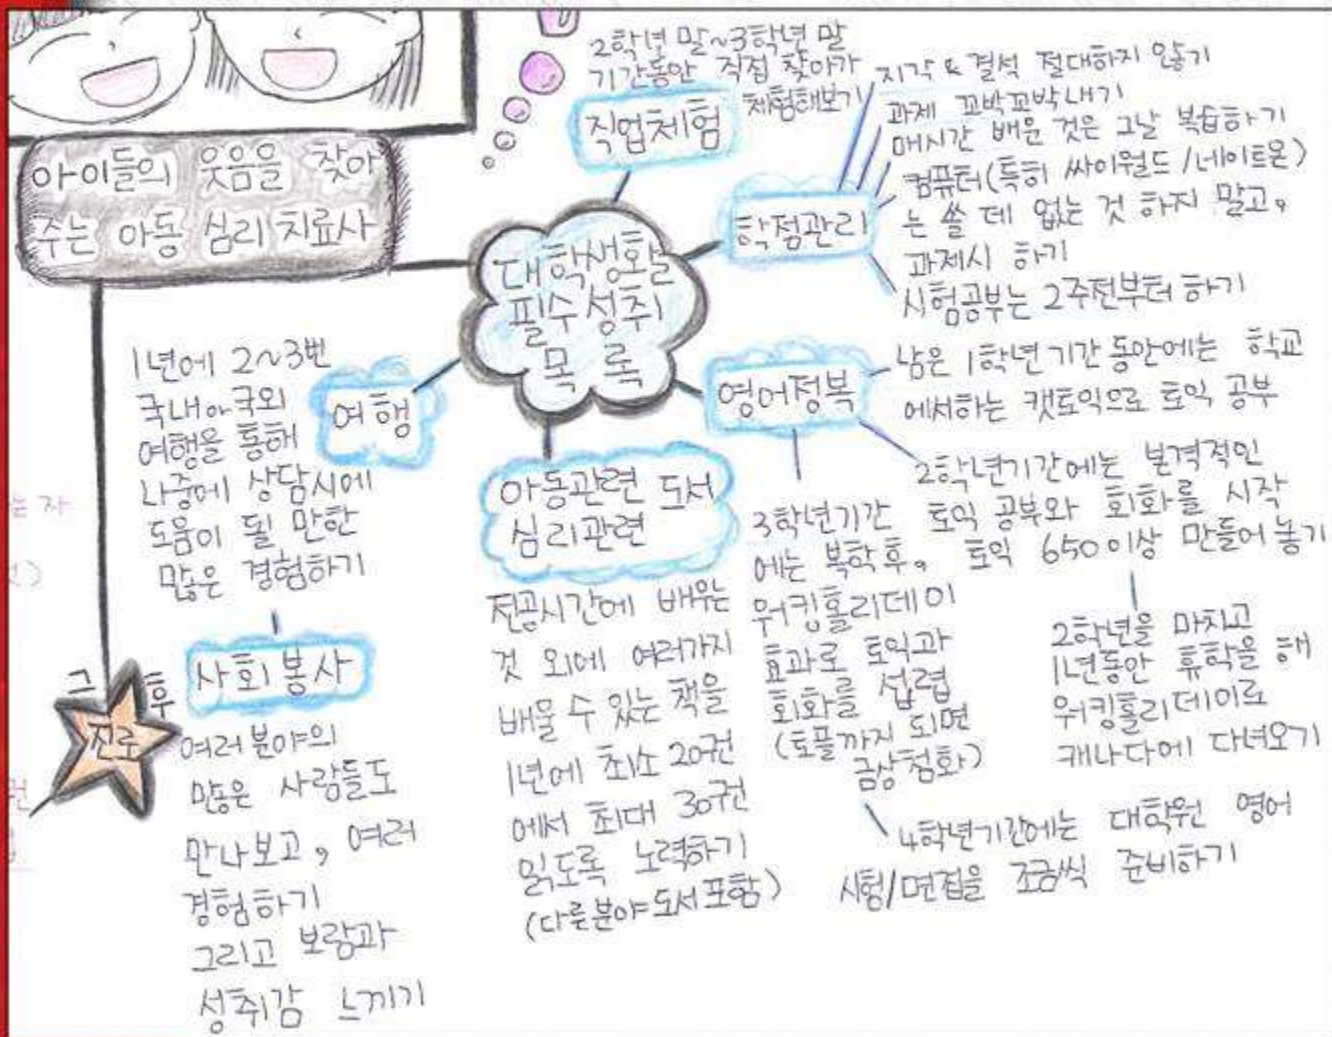 아이들의 웃음을 찾아
주는 아동 심리치료사
대학생활
필수성취
목록
직업체험
2학년 말~3학년 말
기간동안 직접 찾아가
체험해보기
학점관리
지각 & 결석 절대하지 않기
과제 꼬박꼬박내기
매시간 배운 것은 그날 복습하기
컴퓨터(특히 싸이월드/네이트온)
는 쓸 데 없는 것 하지 말고,
과제시 하기
시험공부는 2주전부터 하기
영어정복
남은 1학년 기간 동안에는 학교
에서하는 캣토익으로 토익 공부
2학년기간에는 본격적인
토익 공부와 회화를 시작
토익 650이상 만들어 놓기
2학년을 마치고
1년동안 휴학을 해
워킹홀리데이로
캐나다에 다녀오기
3학년기간
에는 복학 후,
워킹홀리데이
효과로 토익과
회화를 섭렵
(토플까지 되면
금상첨화)
4학년기간에는 대학원 영어
시험/면접을 조금씩 준비하기
아동관련 도서
심리관련
전공시간에 배우는
것 외에 여러가지
배울 수 있는 책을
1년에 최소 20권
에서 최대 30권
읽도록 노력하기
(다른분야도서포함)
여행
1년에 2~3번
국내or국외
여행을 통해
나중에 상담시에
도움이 될 만한
많은 경험하기
사회봉사
여러분야의
많은 사람들도
만나보고, 여러
경험하기
그리고 보람과
성취감 느끼기
그 후
진로
는 자